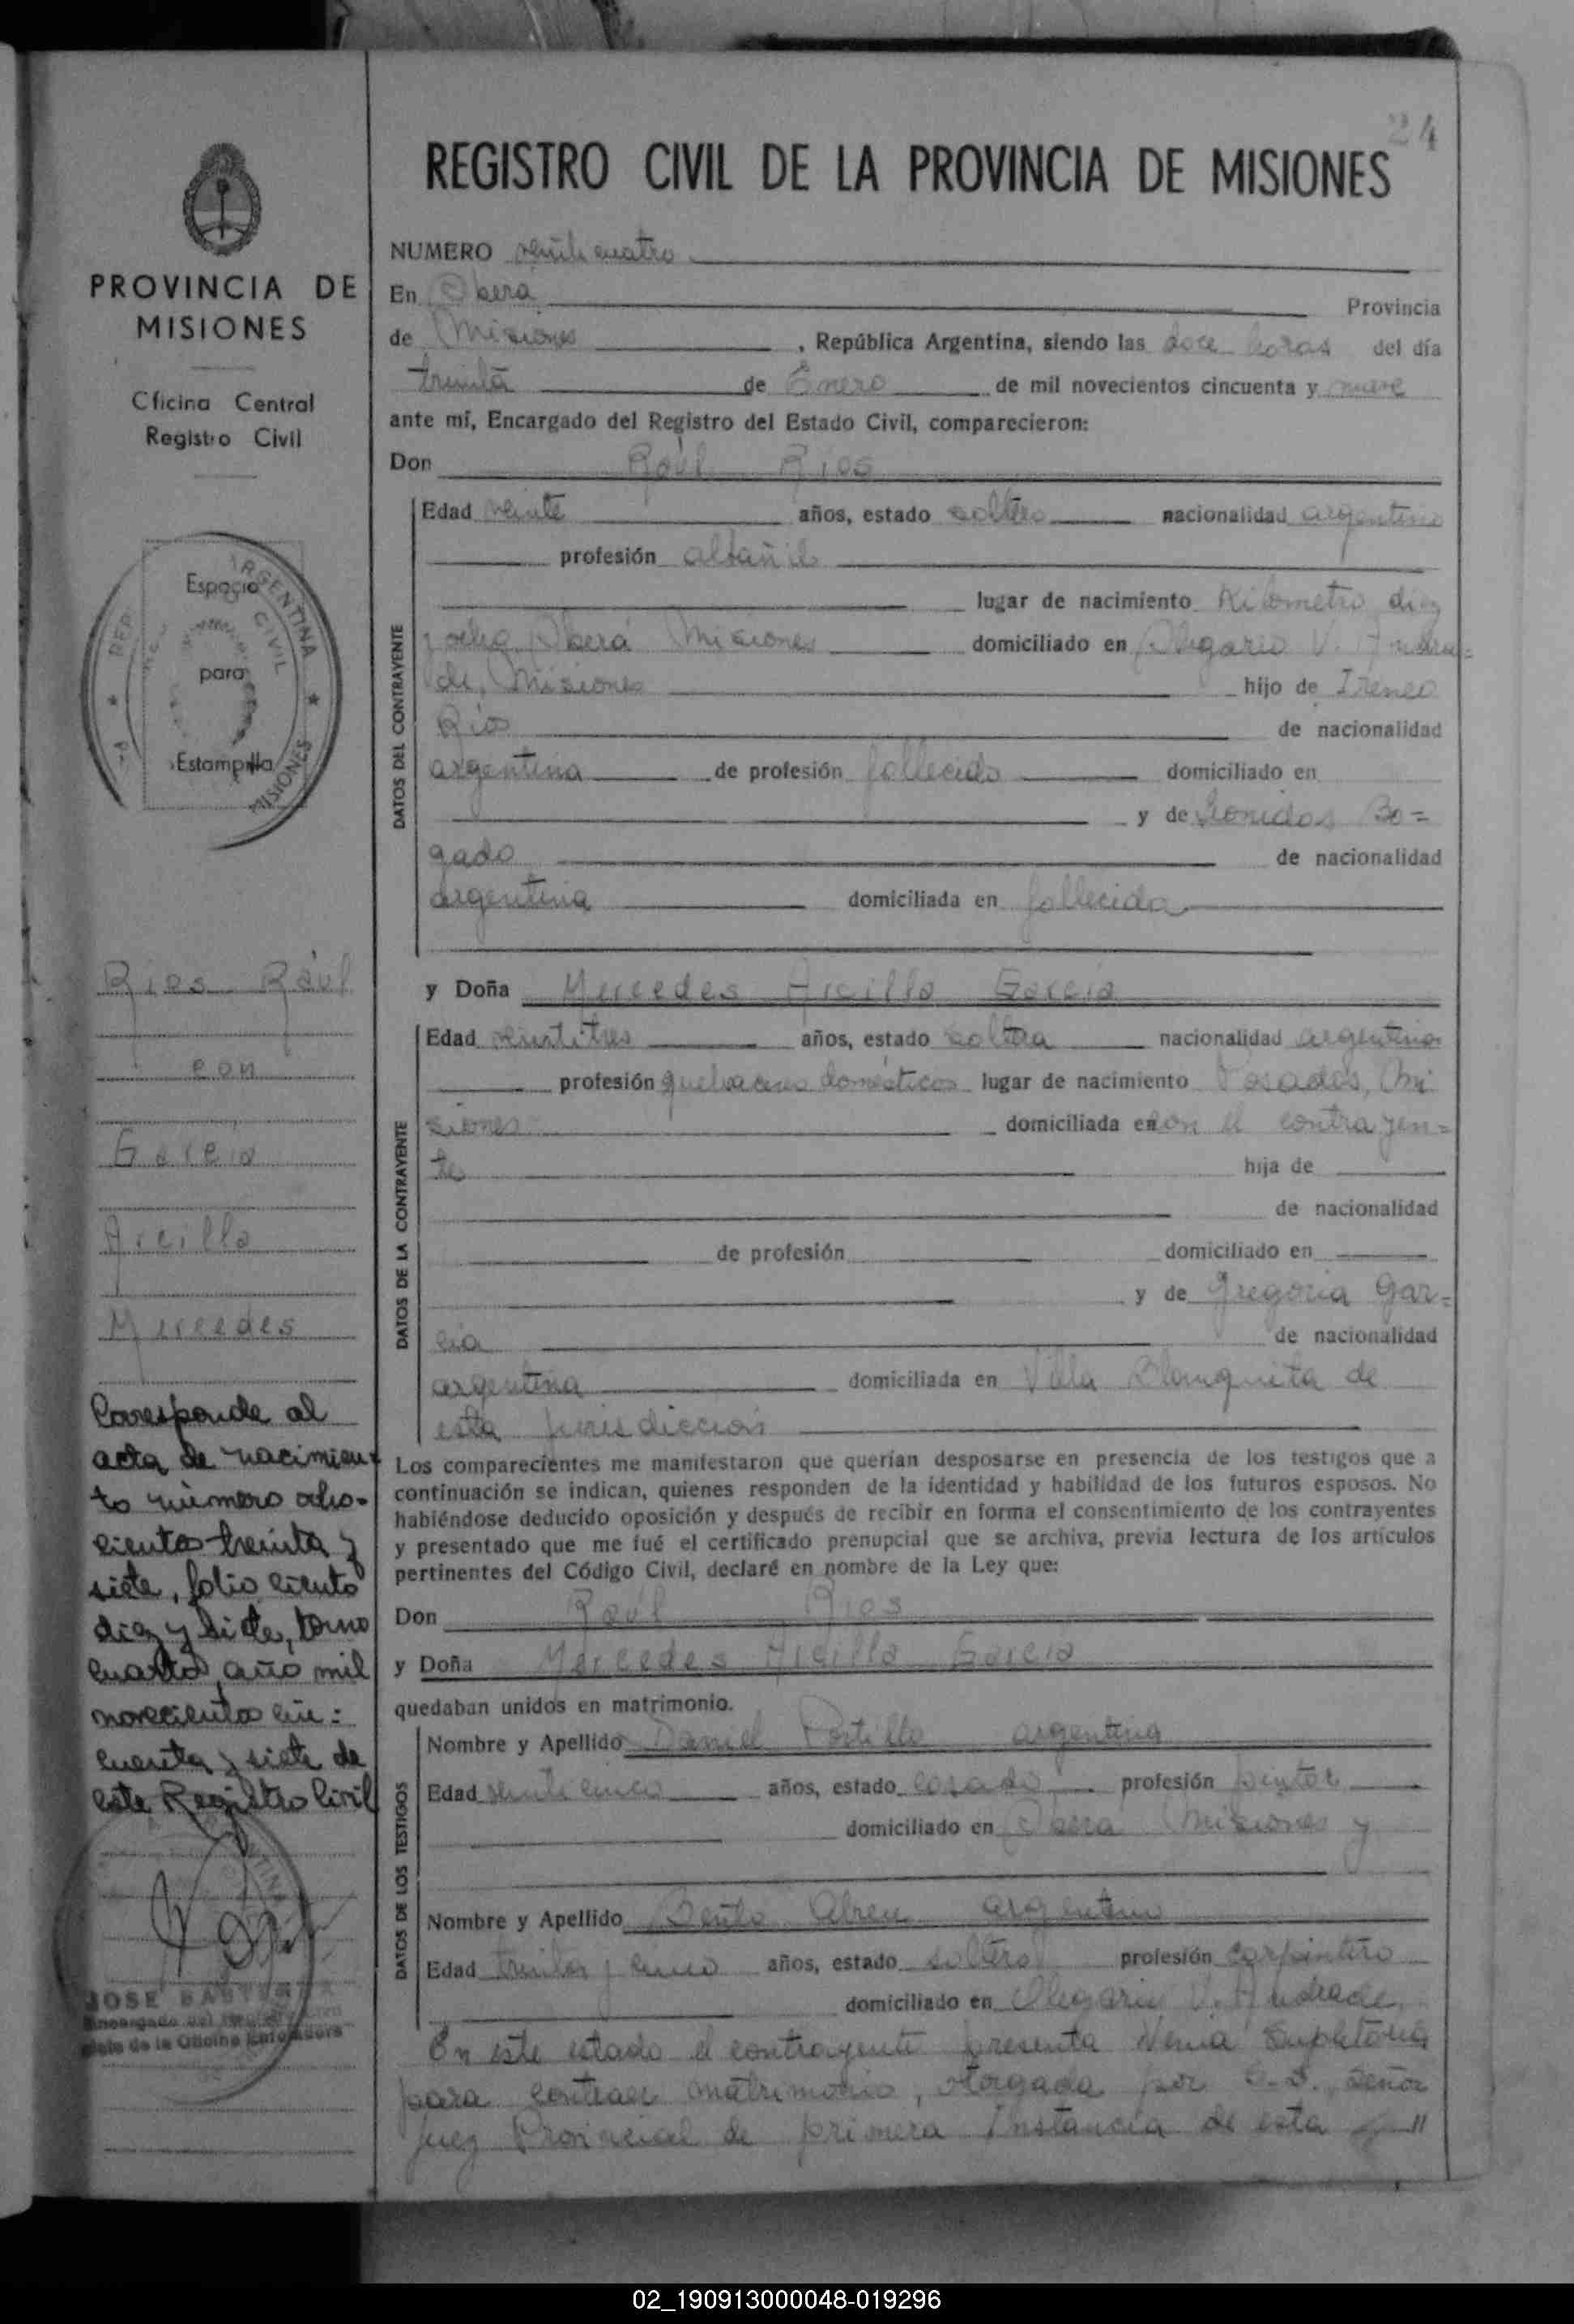 24
REGISTRO CIVIL DE LA PROVINCIA DE MISIONES
PROVINCIA DE
MISIONES
Oficina Central
Registro Civil
Espacio
para
Estampilla
REP. ARGENTINA
CIVIL
MISIONES
Rios Raúl
con
Garcia
Arcilla
Mercedes
Corresponde al
acta de nacimien-
to número ocho-
cientos treinta y
siete, folio ciento
diez y siete, tomo
cuarto, año mil
novecientos cin=
cuenta y siete de
este Registro Civil
JOSE
Encargado del
Jefe de la Oficina
NUMERO veinticuatro
En Oberá Provincia
de Misiones , República Argentina, siendo las doce horas del día
treinta de Enero de mil novecientos cincuenta y nueve
ante mí, Encargado del Registro del Estado Civil, comparecieron:
Don Raúl Rios
DATOS DEL CONTRAYENTE
Edad veinte años, estado soltero nacionalidad argentino
profesión albañil
lugar de nacimiento Kilómetro diez
y ocho, Oberá Misiones domiciliado en Olegario V. Andra=
de, Misiones hijo de Ireneo
Rios de nacionalidad
argentina de profesión fallecido domiciliado en
y de Leonidas Bo=
gado de nacionalidad
argentina domiciliada en fallecida
y Doña Mercedes Arcilla Garcia
DATOS DE LA CONTRAYENTE
Edad veintitres años, estado soltera nacionalidad argentina
profesión quehaceres domésticos lugar de nacimiento Posadas, Mi
siones domiciliada en con el contrayen=
te hija de
de nacionalidad
de profesión domiciliado en
y de Gregoria Gar=
cia de nacionalidad
argentina domiciliada en Villa Blanquita de
esta jurisdicción
Los comparecientes me manifestaron que querían desposarse en presencia de los testigos que a
continuación se indican, quienes responden de la identidad y habilidad de los futuros esposos. No
habiéndose deducido oposición y después de recibir en forma el consentimiento de los contrayentes
y presentado que me fué el certificado prenupcial que se archiva, previa lectura de los artículos
pertinentes del Código Civil, declaré en nombre de la Ley que:
Don Raúl Rios
y Doña Mercedes Arcilla Garcia
quedaban unidos en matrimonio.
DATOS DE LOS TESTIGOS
Nombre y Apellido Daniel Portillo argentino
Edad veinticinco años, estado casado profesión pintor
domiciliado en Oberá Misiones y
Nombre y Apellido Bento Abreu argentino
Edad treinta y cinco años, estado soltero profesión carpintero
domiciliado en Olegario V. Andrade,
En este estado el contrayente presenta Venia Supletoria
para contraer matrimonio, otorgada por S.S. Señor
Juez Provincial de primera Instancia de esta "
02_190913000048-019296